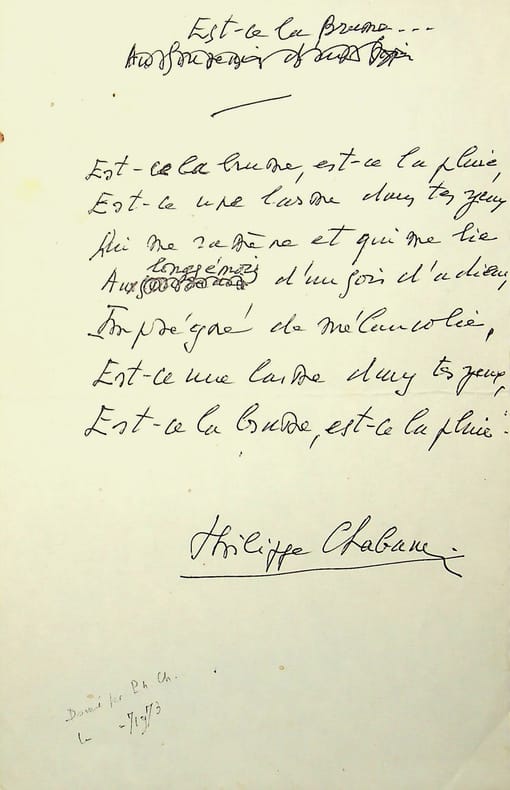 Est-ce la Brume...
Est-ce la brume, est-ce la pluie,
Est-ce une larme dans tes yeux
Qui me ramène et qui me lie
Aux longs émois d'un soir d'adieu,
Imprégné de mélancolie,
Est-ce une larme dans tes yeux,
Est-ce la brume, est-ce la pluie.
Philippe Chabane
Donné par Ph. Ch.